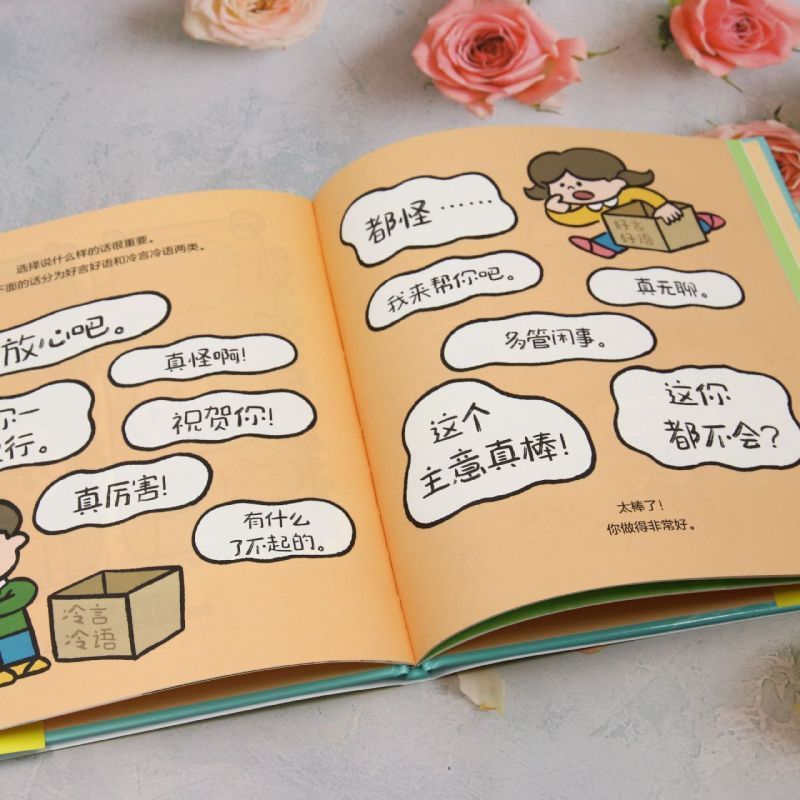 选择说什么样的话很重要。
下面的话分为好言好语和冷言冷语两类。
放心吧。
真怪啊！
你一
行。
祝贺你！
真厉害！
有什么
了不起的。
冷言
冷语
都怪……
好言
好语
我来帮你吧。
真无聊。
多管闲事。
这个
主意真棒！
这你
都不会？
太棒了！
你做得非常好。